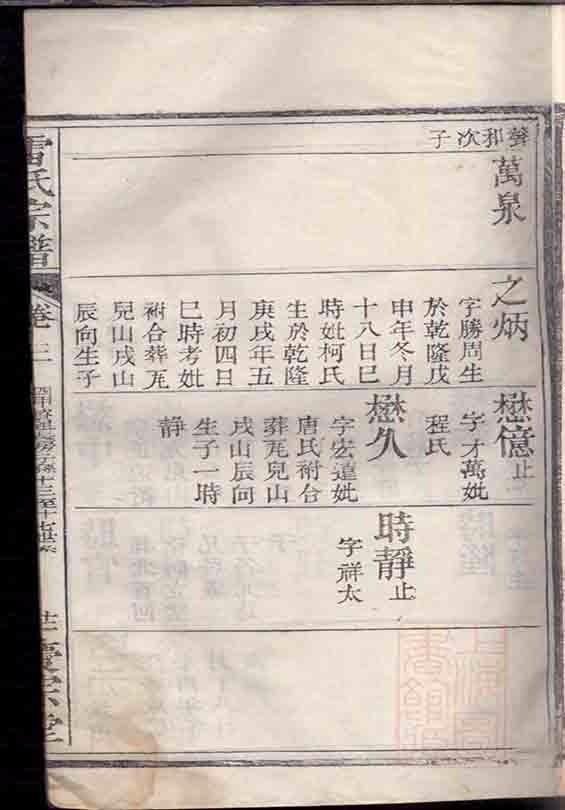 次子
萬泉
之炳
字勝周生
於乾隆戊
申年冬月
十八日巳
時妣柯氏
生於乾隆
庚戌年五
月初四日
巳時考妣
祔合葬瓦
兒山戌山
辰向生子
懋億止
字才萬妣
程氏
懋久
字宏遠妣
唐氏祔合
葬瓦兒山
戌山辰向
生子一時
靜
時靜止
字祥太
雷氏宗譜
卷三
宗堂
上海圖
書館藏